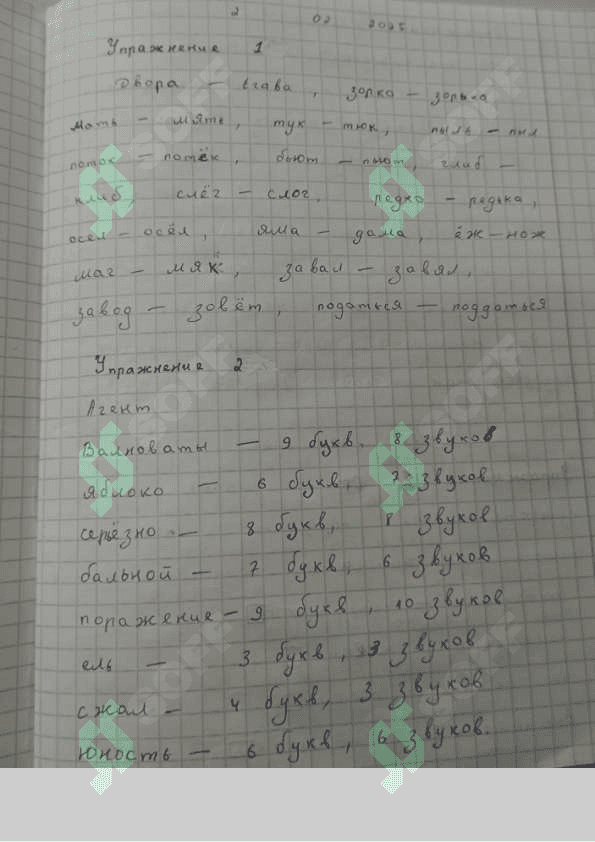 2 02 2025
Упражнение 1
Двора — вдова, зорко — зорька
мать — мять, тук — тюк, пыль — пыл
поток — потёк, бьют — пьют, глиб —
клиб, слёг — слог, редко — редька,
осел — осёл, яма — дама, ёж — нож
маг — мяк, завал — завял,
завод — зовёт, податься — поддаться
Упражнение 2
Агент
Валноваты — 9 букв. 8 звуков
яблоко — 6 букв, 7 звуков
серьёзно — 8 букв, 8 звуков
бальной — 7 букв, 6 звуков
поражение — 9 букв, 10 звуков
ель — 3 букв, 3 звуков
сжал — 4 букв, 3 звуков
юность — 6 букв, 6 звуков.
SOFF
SOFF
SOFF
SOFF
SOFF
SOFF